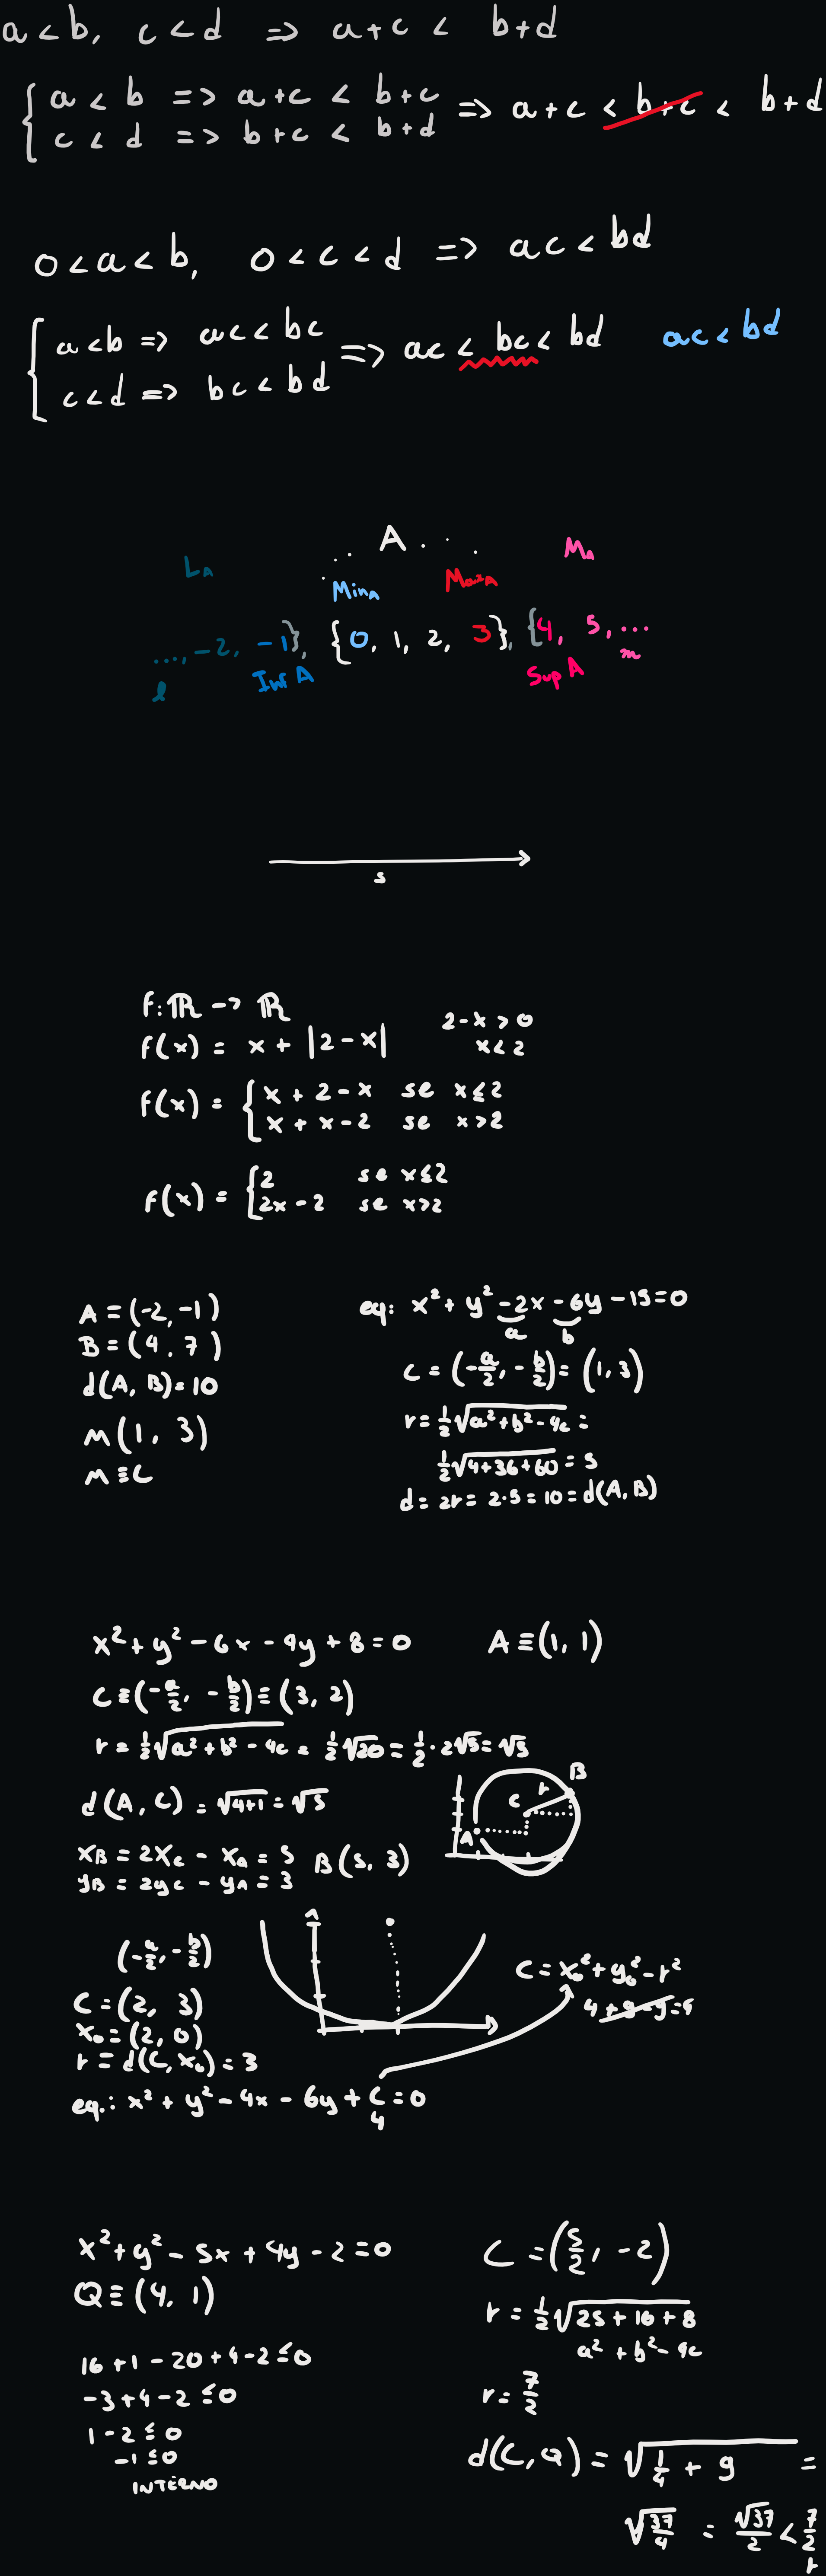 a < b, c < d => a+c < b+d
{ a < b => a+c < b+c => a+c < b+c < b+d
c < d => b+c < b+d
0 < a < b, 0 < c < d => ac < bd
{ a < b => ac < bc => ac < bc < bd ac < bd
c < d => bc < bd
A
L_A M_A
Min_A Max_A
..., -2, -1}, {0, 1, 2, 3}, {4, 5, ...
l Inf A Sup A m
s
f: ℝ -> ℝ
f(x) = x + |2 - x| 2 - x > 0
x < 2
f(x) = { x + 2 - x se x ≤ 2
x + x - 2 se x > 2
f(x) = { 2 se x ≤ 2
2x - 2 se x > 2
A = (-2, -1)
B = (4, 7)
d(A, B) = 10
M(1, 3)
M ≡ C
eq: x² + y² - 2x - 6y - 15 = 0
a b
C = (-a/2, -b/2) = (1, 3)
r = 1/2 √(a² + b² - 4c) =
1/2 √(4 + 36 + 60) = 5
d = 2r = 2·5 = 10 = d(A, B)
x² + y² - 6x - 4y + 8 = 0 A ≡ (1, 1)
C ≡ (-a/2, -b/2) ≡ (3, 2)
r = 1/2 √(a² + b² - 4c) = 1/2 √20 = 1/2 · 2√5 = √5
d(A, C) = √(4+1) = √5
x_B = 2x_C - x_A = 5 B(5, 3)
y_B = 2y_C - y_A = 3
A C r B
(-a/2, -b/2)
C = (2, 3)
x₀ = (2, 0)
r = d(C, x₀) = 3
eq.: x² + y² - 4x - 6y + c = 0
4
C = x₀² + y₀² - r²
4 + 9 - 9 = 4
x² + y² - 5x + 4y - 2 = 0
Q ≡ (4, 1)
16 + 1 - 20 + 4 - 2 ≤ 0
-3 + 4 - 2 ≤ 0
1 - 2 ≤ 0
-1 ≤ 0
INTERNO
C = (5/2, -2)
r = 1/2 √(25 + 16 + 8)
a² + b² - 4c
r = 7/2
d(C, Q) = √(9/4 + 9) =
√(37/4) = √37/2 < 7/2
r